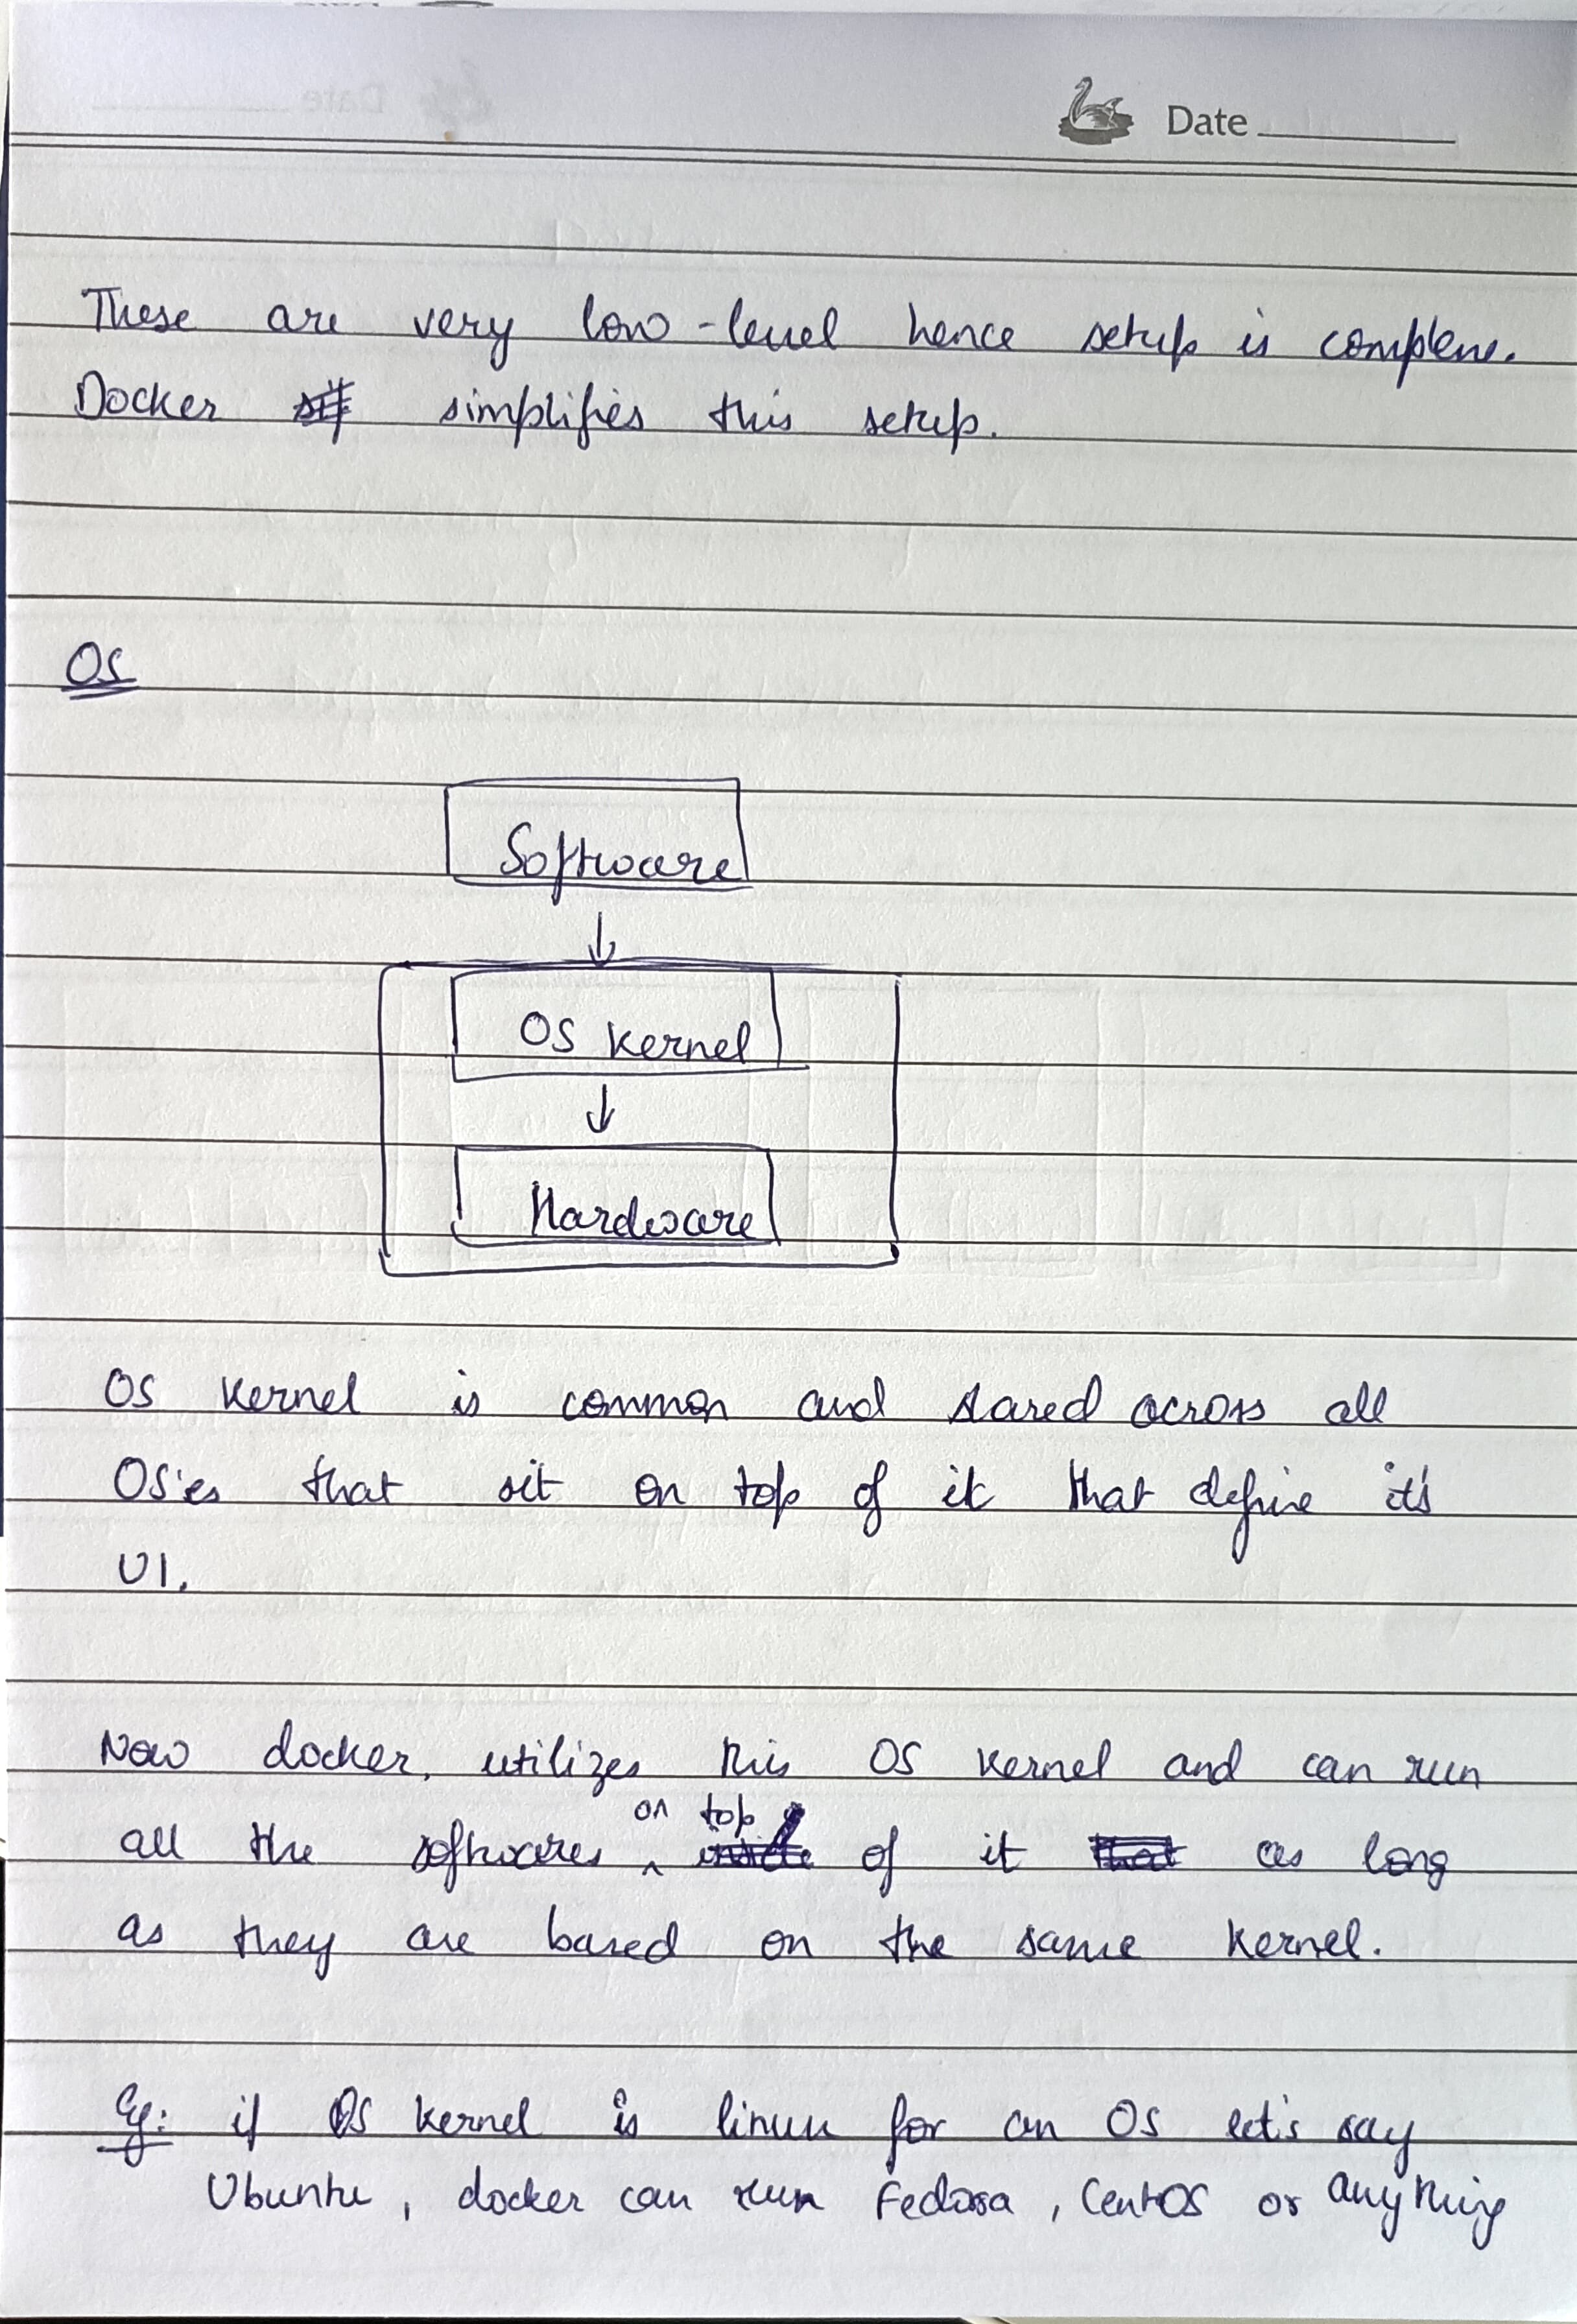 Date
These are very low-level hence setup is complex.
Docker simplifies this setup.
OS
Software
↓
OS Kernel
↓
Hardware
OS Kernel is common and shared across all
OS'es that sit on top of it that define it's
UI.
Now docker, utilizes this OS Kernel and can run
all the softwares on top of it as long
as they are based on the same Kernel.
Eg: if OS Kernel is linux for an OS let's say
Ubuntu, docker can run Fedora, CentOS or anything